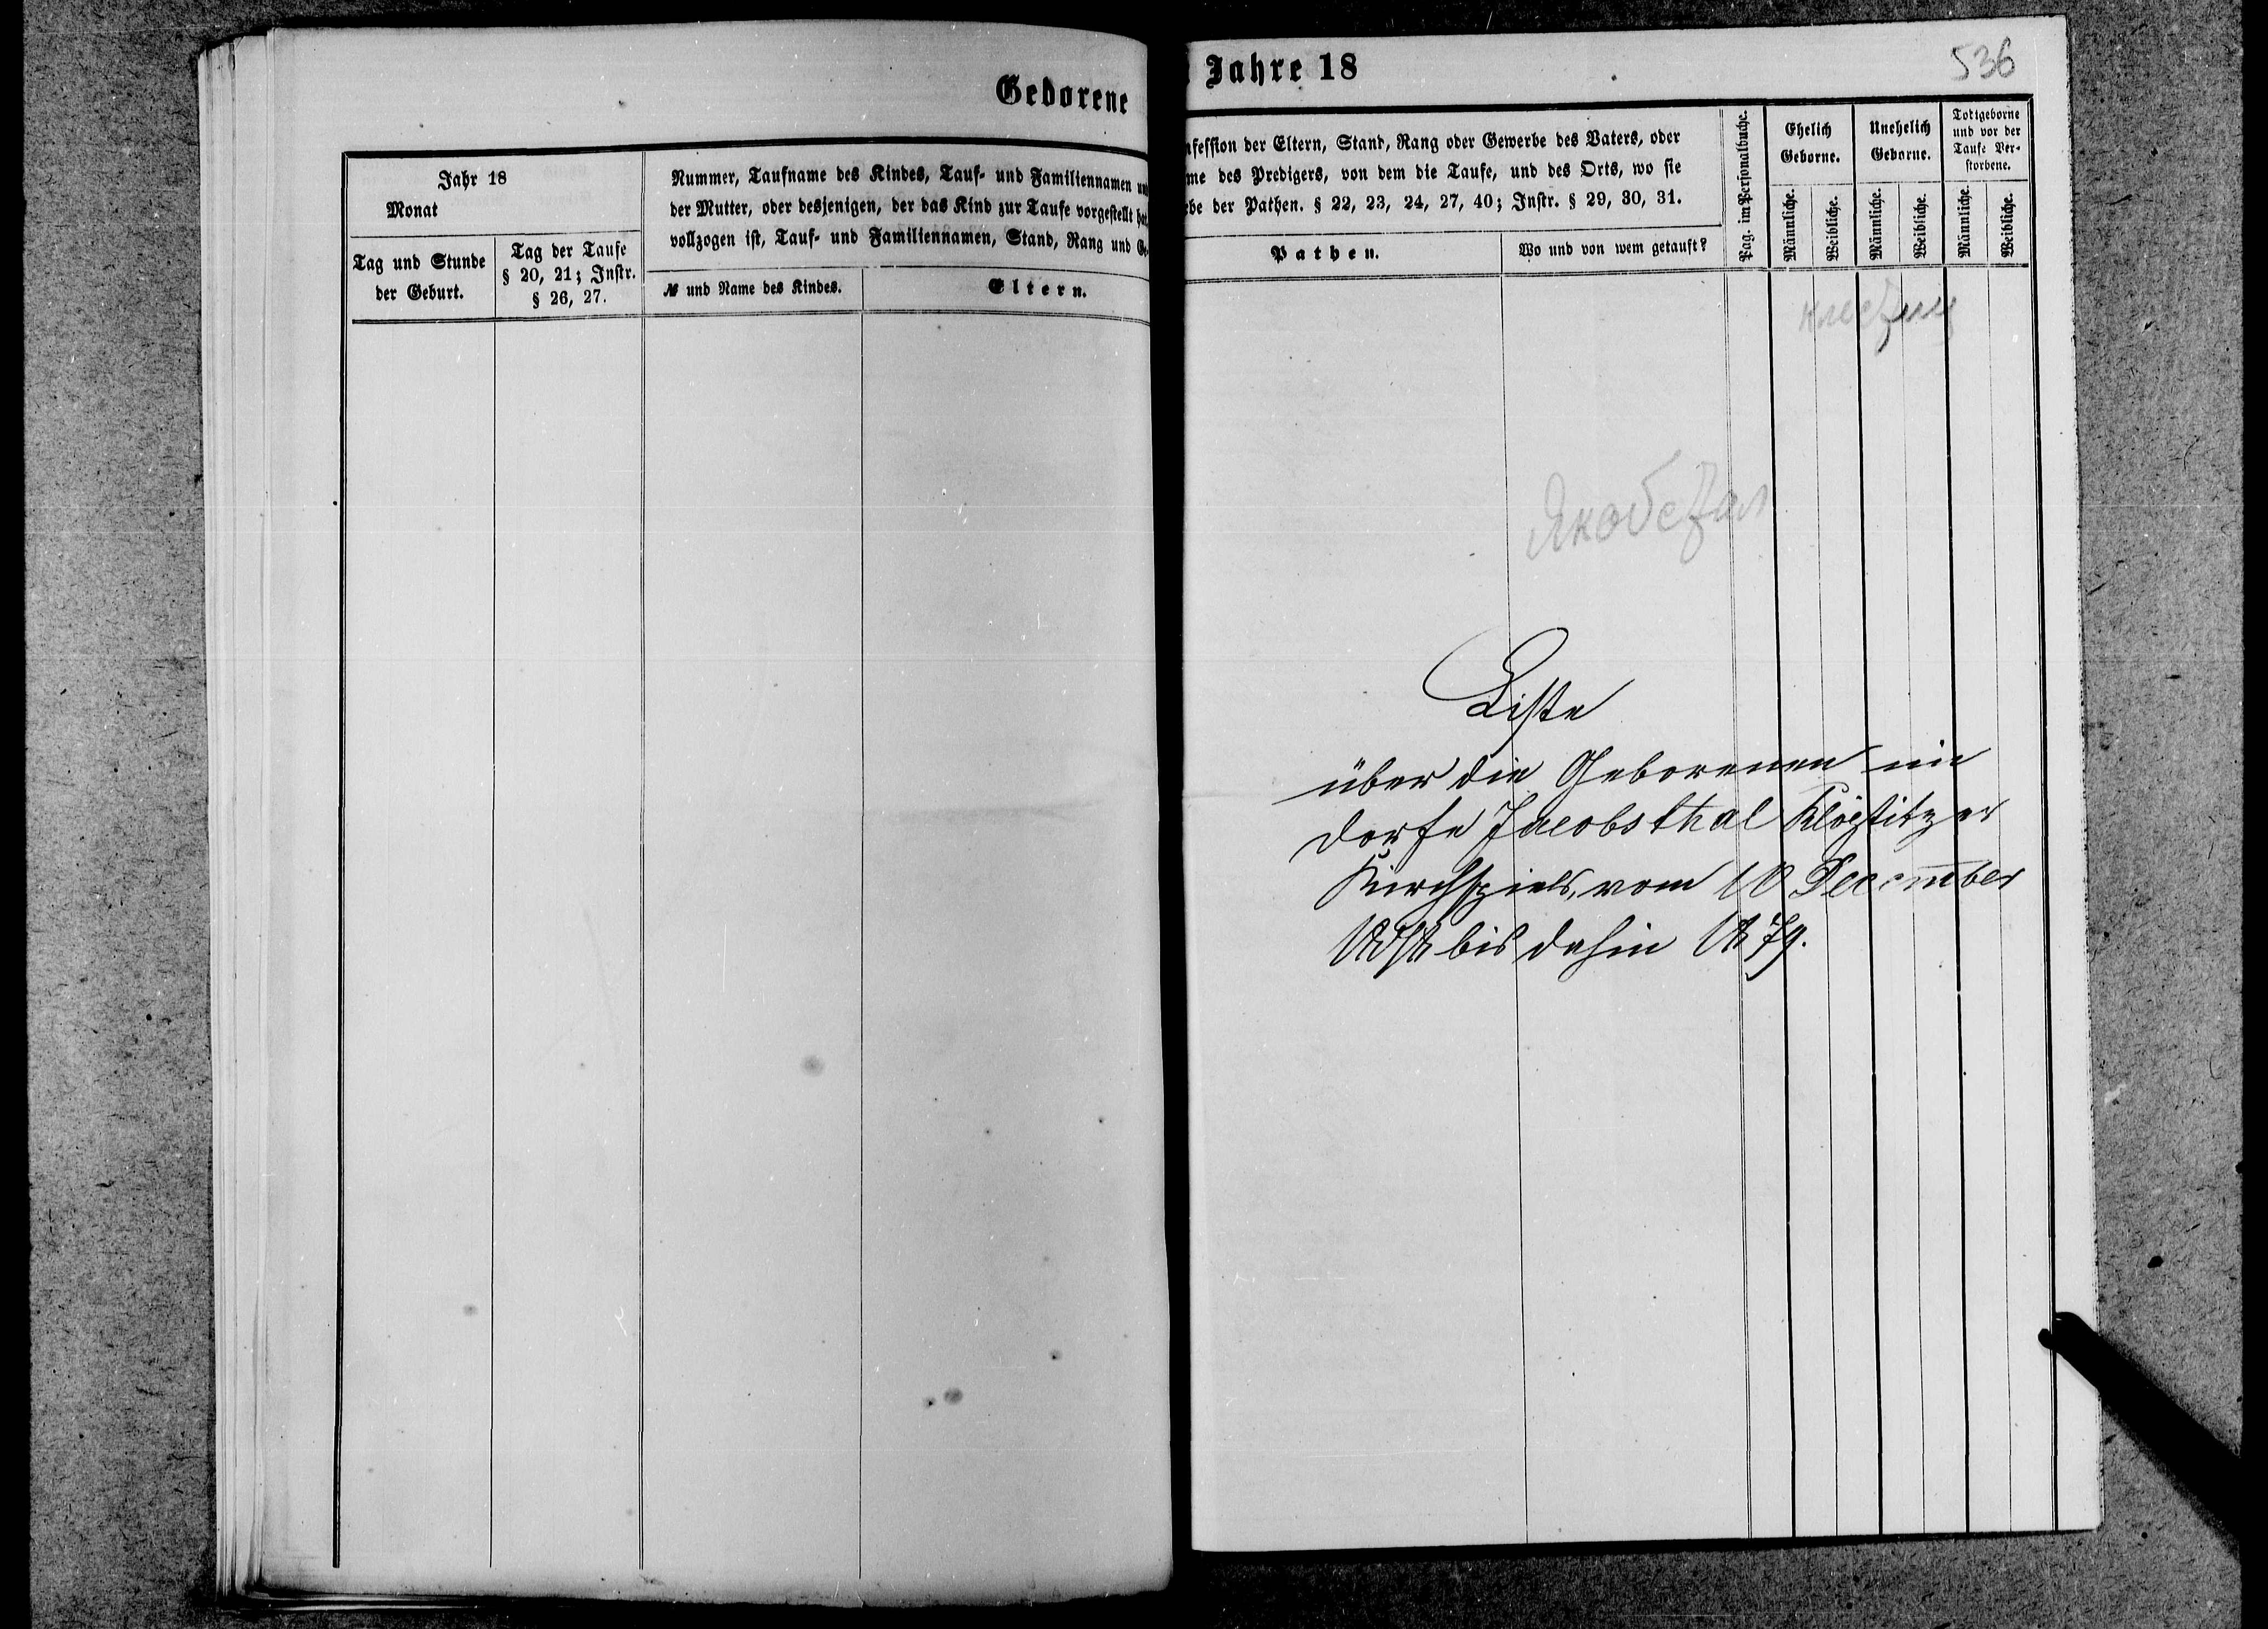 Geborene
Jahr 18
Monat
Tag und Stunde
der Geburt.
Tag der Taufe
§ 20, 21; Instr.
§ 26, 27.
Nummer, Taufname des Kindes, Tauf- und Familiennamen
der Mutter, oder desjenigen, der das Kind zur Taufe vorgestellt
vollzogen ist, Tauf- und Familiennamen, Stand, Rang und
№ und Name des Kindes.
Eltern.
Jahre 18
536
nfession der Eltern, Stand, Rang oder Gewerbe des Vaters, oder
me des Predigers, von dem die Taufe, und des Orts, wo sie
be der Pathen. § 22, 23, 24, 27, 40; Instr. § 29, 30, 31.
Pathen.
Wo und von wem getauft?
Pag. im Personalbuche.
Ehelich
Geborne.
Männliche.
Weibliche.
Unehelich
Geborne.
Männliche.
Weibliche.
Todtgeborne
und vor der
Taufe Ver-
storbene.
Männliche.
Weibliche.
Якобстал
Liste
über die Geborenen im
Dorfe Jacobsthal Klöstitzer
Kirchspiels, vom 10 December
bis dahin 1879.